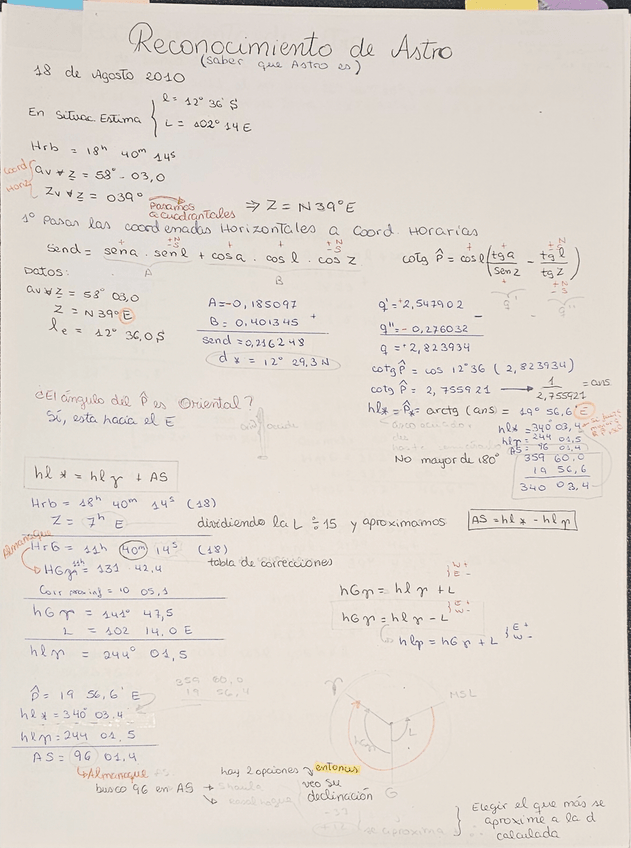 Reconocimiento de Astro
(saber que Astro es)
18 de Agosto 2010
En Situac. Estima
l = 12° 36' S
L = 102° 14 E
Hrb = 18h 40m 14s
Coord Horiz
av * Z = 58° - 03,0
Zv * Z = 039°
Pasamos a cuadrantales
⇒ Z = N 39° E
1° Pasar las coordenadas Horizontales a Coord. Horarias
send = sena . senl + cosa . cosl . cos Z
A
B
cotg P̂ = cosl (tg a / sen Z - tg l / tg Z)
q'
q''
DATOS:
av * Z = 58° 03,0
Z = N 39° E
le = 12° 36,0 S
A = -0,185097
B = 0,401345 +
send = 0,216248
d* = 12° 29,3 N
q' = +2,547902 -
q'' = -0,276032
q = +2,823934
cotg P̂ = cos 12° 36 (2,823934)
cotg P̂ = 2,755921 → 1 / 2,755921 = ans
hl* = P̂* = arctg (ans) = 19° 56,6' E
¿El ángulo del P̂ es Oriental?
Sí, esta hacia el E
No mayor de 180°
hl* = 340° 03,4
hlγ = 244 01,5
AS = 96 01,4
359 60,0
19 56,6
340 03,4
hl* = hlγ + AS
Hrb = 18h 40m 14s (18)
Z = 7h E
dividiendo la L ÷ 15 y aproximamos
AS = hl* - hlγ
Almanaque
HrG = 11h 40m 14s (18)
tabla de correcciones
HGγ 11h = 131 42,4
Corr por inf = 10 05,1
hGγ = 141° 47,5
L = 102 14,0 E
hlγ = 244° 01,5
hGγ = hlγ + L
W +
E -
hGγ = hlγ - L
E +
W -
hlγ = hGγ + L
E +
W -
P̂ = 19 56,6' E
hl* = 340° 03,4
hlγ = 244 01,5
AS = 96 01,4
359 60,0
19 56,4
γ
MSL
hGγ
L
G
Almanaque
busco 96 en AS
hay 2 opciones
entonces
veo su
declinación
se aproxima
Elegir el que más se
aproxime a la d
calculada